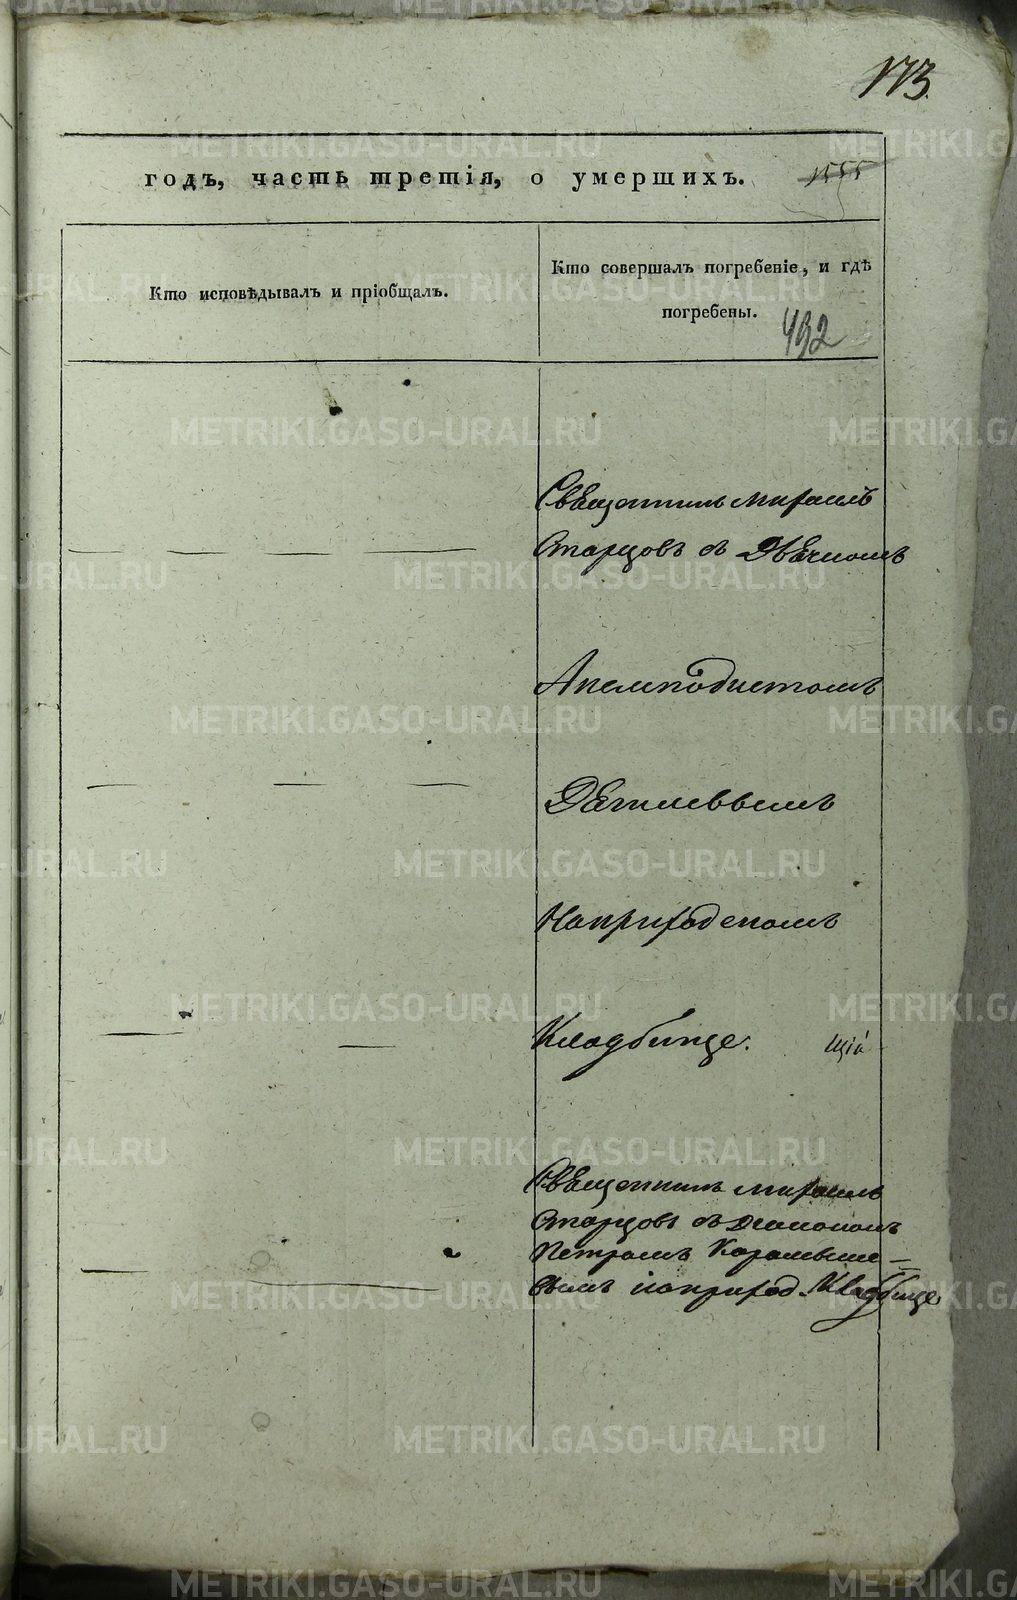 173.
годъ, часть третія, о умершихъ. 1555
Кто исповѣдывалъ и пріобщалъ.
Кто совершалъ погребеніе, и гдѣ
погребены.
492
Священникъ Михаилъ
Старцовъ съ Дьячкомъ
Акемподистомъ
Наприходскомъ
Кладбище. щіа
Священникъ Михаилъ
Старцовъ съ Дьякономъ
Петромъ
наприход. Кладбище
METRIKI.GASO-URAL.RU